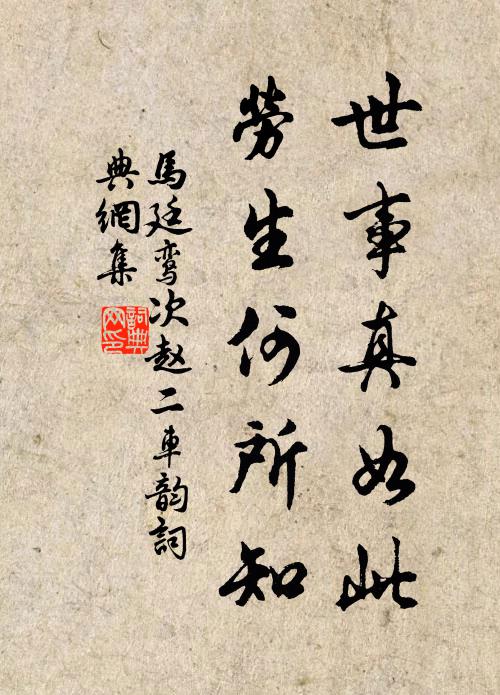 世事真如此
勞生何所知
馬廷鸾次赵二車韵詞
典網集
詞典
网印